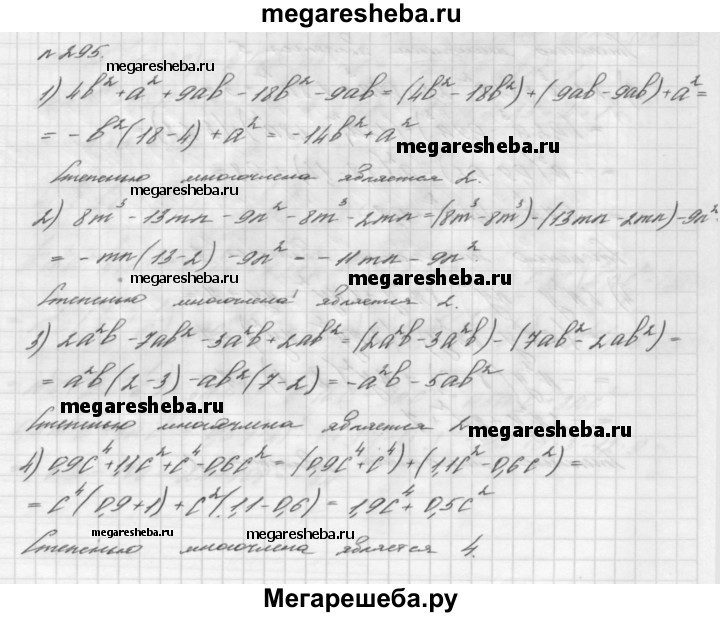 megaresheba.ru
n 295.
megaresheba.ru
1) 4b² + a² + 9ab - 18b² - 9ab = (4b² - 18b²) + (9ab - 9ab) + a² =
= - b²(18 - 4) + a² = -14b² + a²
megaresheba.ru
Степенью многочлена является 2.
megaresheba.ru
2) 8m³ - 13mn - 9n² - 8m³ - 2mn = (8m³ - 8m³) - (13mn - 2mn) - 9n² =
= - mn(13 - 2) - 9n² = - 11mn - 9n².
megaresheba.ru megaresheba.ru
Степенью многочлена является 2.
3) 2a²b - 7ab² - 3a²b + 2ab² = (2a²b - 3a²b) - (7ab² - 2ab²) =
= a²b(2 - 3) - ab²(7 - 2) = -a²b - 5ab²
megaresheba.ru
Степенью многочлена является
megaresheba.ru
4) 0,9c⁴ + 1,1c² + c⁴ - 0,6c² = (0,9c⁴ + c⁴) + (1,1c² - 0,6c²) =
= c⁴(0,9 + 1) + c²(1,1 - 0,6) = 1,9c⁴ + 0,5c²
megaresheba.ru megaresheba.ru
Степенью многочлена является 4.
Мегарешеба.ру